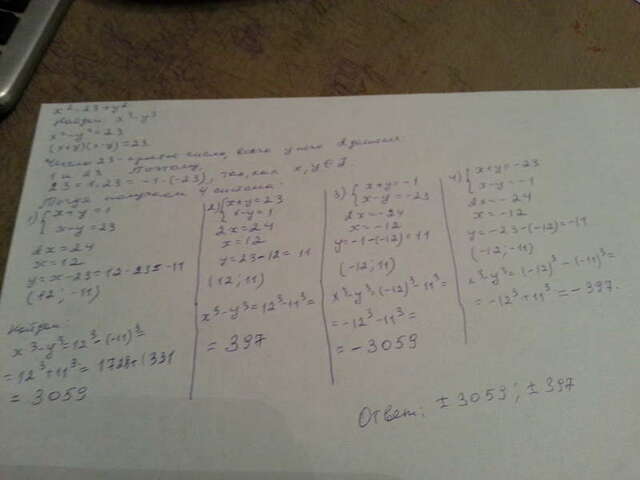 x² = 23 + y²
Найти: x³ - y³
x² - y² = 23
(x+y)(x-y) = 23
Число 23 - простое число, всего у него 2 делителя:
1 и 23. Поэтому
23 = 1·23 = -1·(-23), так как x, y ∈ Z.
Тогда получаем 4 системы:
1) { x + y = 1
x - y = 23
2x = 24
x = 12
y = x - 23 = 12 - 23 = -11
(12; -11)
Найдем:
x³ - y³ = 12³ - (-11)³ =
= 12³ + 11³ = 1728 + 1331
= 3059
2) { x + y = 23
x - y = 1
2x = 24
x = 12
y = 23 - 12 = 11
(12; 11)
x³ - y³ = 12³ - 11³ =
= 397
3) { x + y = -1
x - y = -23
2x = -24
x = -12
y = -1 - (-12) = 11
(-12; 11)
x³ - y³ = (-12)³ - 11³ =
= -12³ - 11³ =
= -3059
4) { x + y = -23
x - y = -1
2x = -24
x = -12
y = -23 - (-12) = -11
(-12; -11)
x³ - y³ = (-12)³ - (-11)³ =
= -12³ + 11³ = -397.
Ответ: ± 3059; ± 397